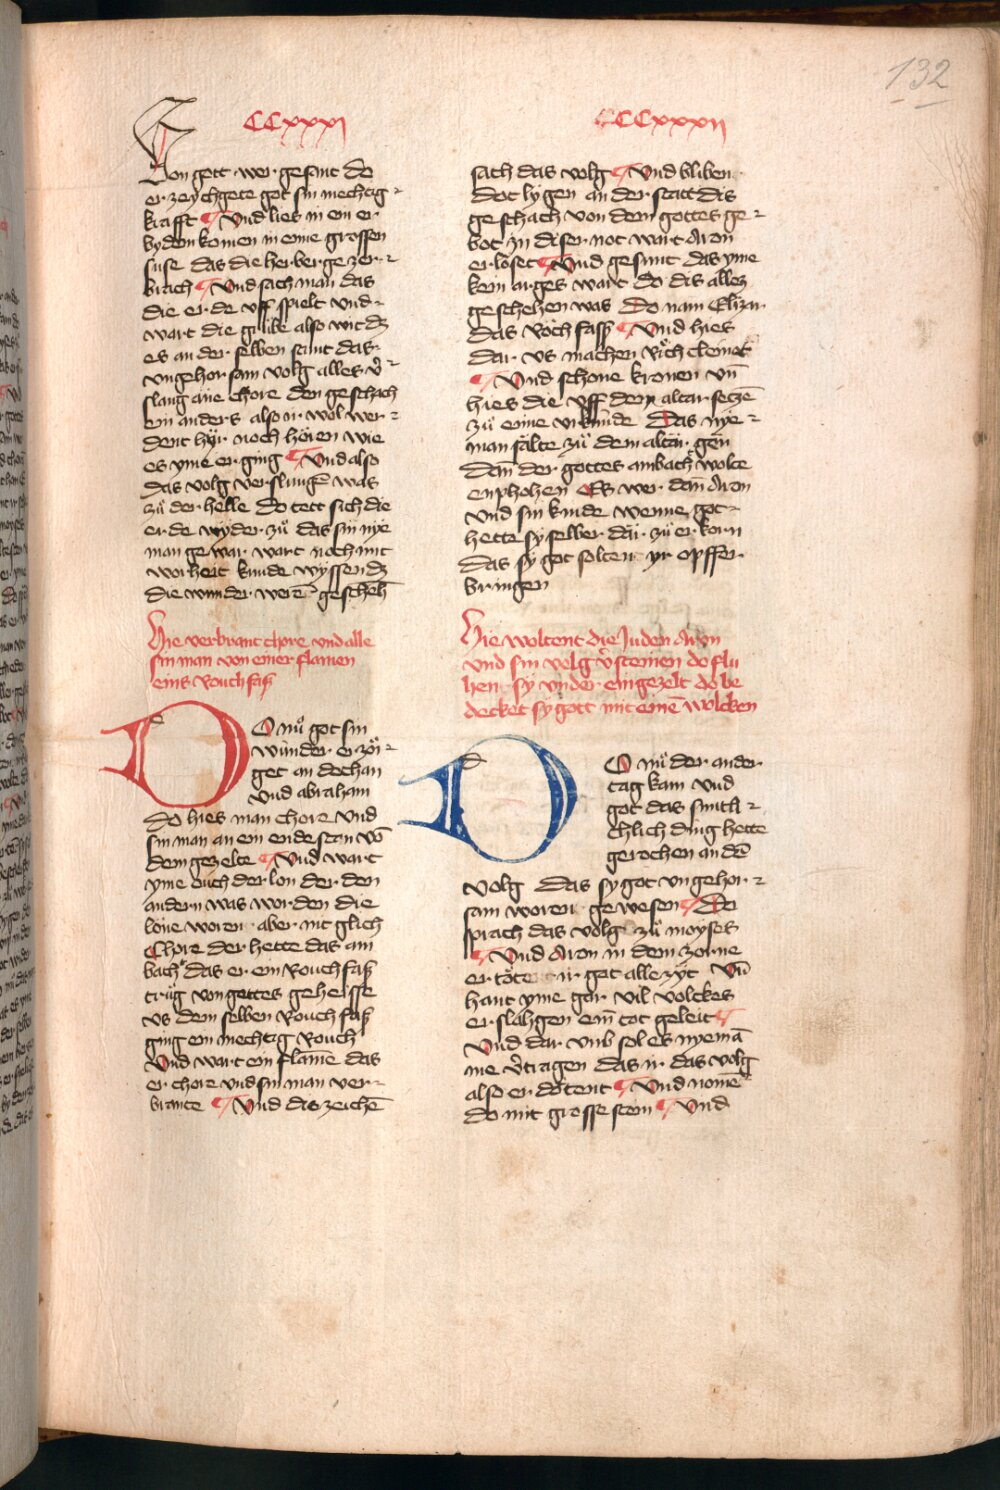 132
CCxxxi
Von gott wer gesant do
er zeychgete got sin mechtig
krafft Vnd lies in ein er
bydem komen in eine grossen
suse das die herberge zer
brach Vnd sach man das
die erde vff spielt vnd
wart die grube also wit dz
es an der selben samt das
vngehorsam volg alles v̊
slang ane chore den geschach
ein anders also ir wol wer
dent hyr noch hören wie
es yme erging Vnd also
das volg verslung was
zů der helle do tett sich die
erde wyder zů das sin nye
man gewar wart noch mit
worheit kunde wyssen dz
die wunder werē gescheh
Hie verbrant chore vnd alle
sin man von einer flamen
eins Rouchfas
DO nů got sin
wunder erzöi
get an dathan
vnd abraham
do hies man chore vnd
sin man an ein ende stan vō
dem gezelte Vnd wart
yme ouch der lon der den
andern was worden die
löne woren aber nit glich
Chore der hette das am
bach das er ein Rouchfas
trůg von gottes geheisse
vs dem selben Rouchfas
ging ein mechtig Rouch
Vnd wart ein flame das
er chore vnd sin man ver
brante Vnd dis zeichē
CCCxxxii
sach das volg Vnd bliben
dot lygen an der statt dis
geschach von dem gottes ge
bot zu diser not wart Aron
erlöset Vnd gesunt das yme
kein arges wart do dis alles
geschehen was do nam Elizar
das Röchfass Vnd hies
dar vs machen Rich cleinöt
Vnd schone kronen vn̄
hies die vff dem altar setzē
zů eime vrkunde Das nye
man sälte zů dem altar gen
dan der gottes ambach wolte
enphohen Es wer dan Aron
vnd sin kinde wenne got
hette sy selber dar zů erkorn
das sy got solten yr opffer
bringen
Hie woltent die Juden Aron
vnd sin volg v̊steinen do flu
hen sy vnder ein gezelt do be
decket sy gott mit eine wolcken
DO nů der ander
tag kam vnd
got das smeh
ehlich ding hette
gerochen an dē
volg das sy got vngehor
sam woren gewesen Do
sprach das volg zů moyses
Vnd Aron in dem zorne
er töte ir got alle zyt vn̄
hant yme gar vil volckes
erslahgen ein tot geleit
Vnd dar vmb sol es nyemā
me v̊tragen das ir das volg
also erdötent Vnd nome
do mit grosse stein Vnd